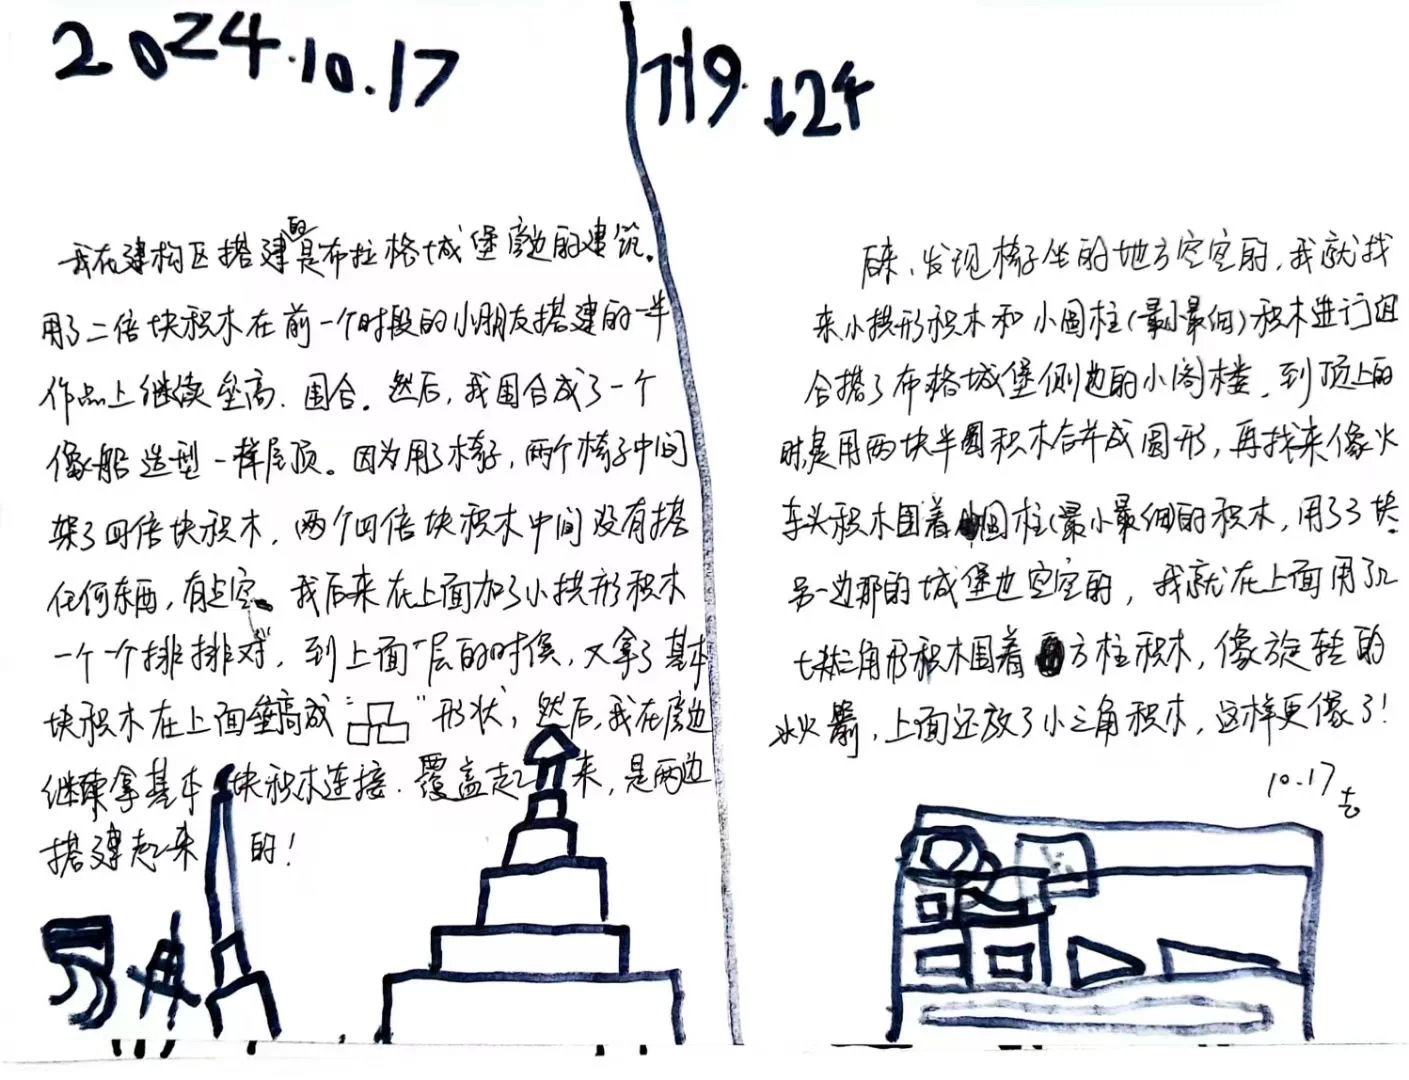 2024.10.17
我在建构区搭建的是布拉格城堡旁边的建筑。
用了二倍块积木在前一个时段的小朋友搭建的一半
作品上继续垒高、围合。然后,我围合成了一个
像船造型一样屋顶。因为用了椅子,两个椅子中间
架了四倍块积木,两个四倍块积木中间没有搭
任何东西,有点空。我后来在上面加了小拱形积木
一个个排排对,到上面一层的时候,又拿了基本
块积木在上面垒高成“ ”形状,然后,我在旁边
继续拿基本块积木连接、覆盖起来,是两边
搭建起来的!
易冉
19.↓24
后来,发现椅子坐的地方空空的,我就找
来小拱形积木和小圆柱(最小最细)积木进行组
合搭了布格城堡侧边的小阁楼,到顶上的
时是用两块半圆积木合并成圆形,再找来像火
车头积木围着圆柱(最小最细)的积木,用了3块
另一边那的城堡也空空的,我就在上面用了几
块三角形积木围着方柱积木,像旋转的
火箭,上面还放了小三角积木,这样更像了!
10.17